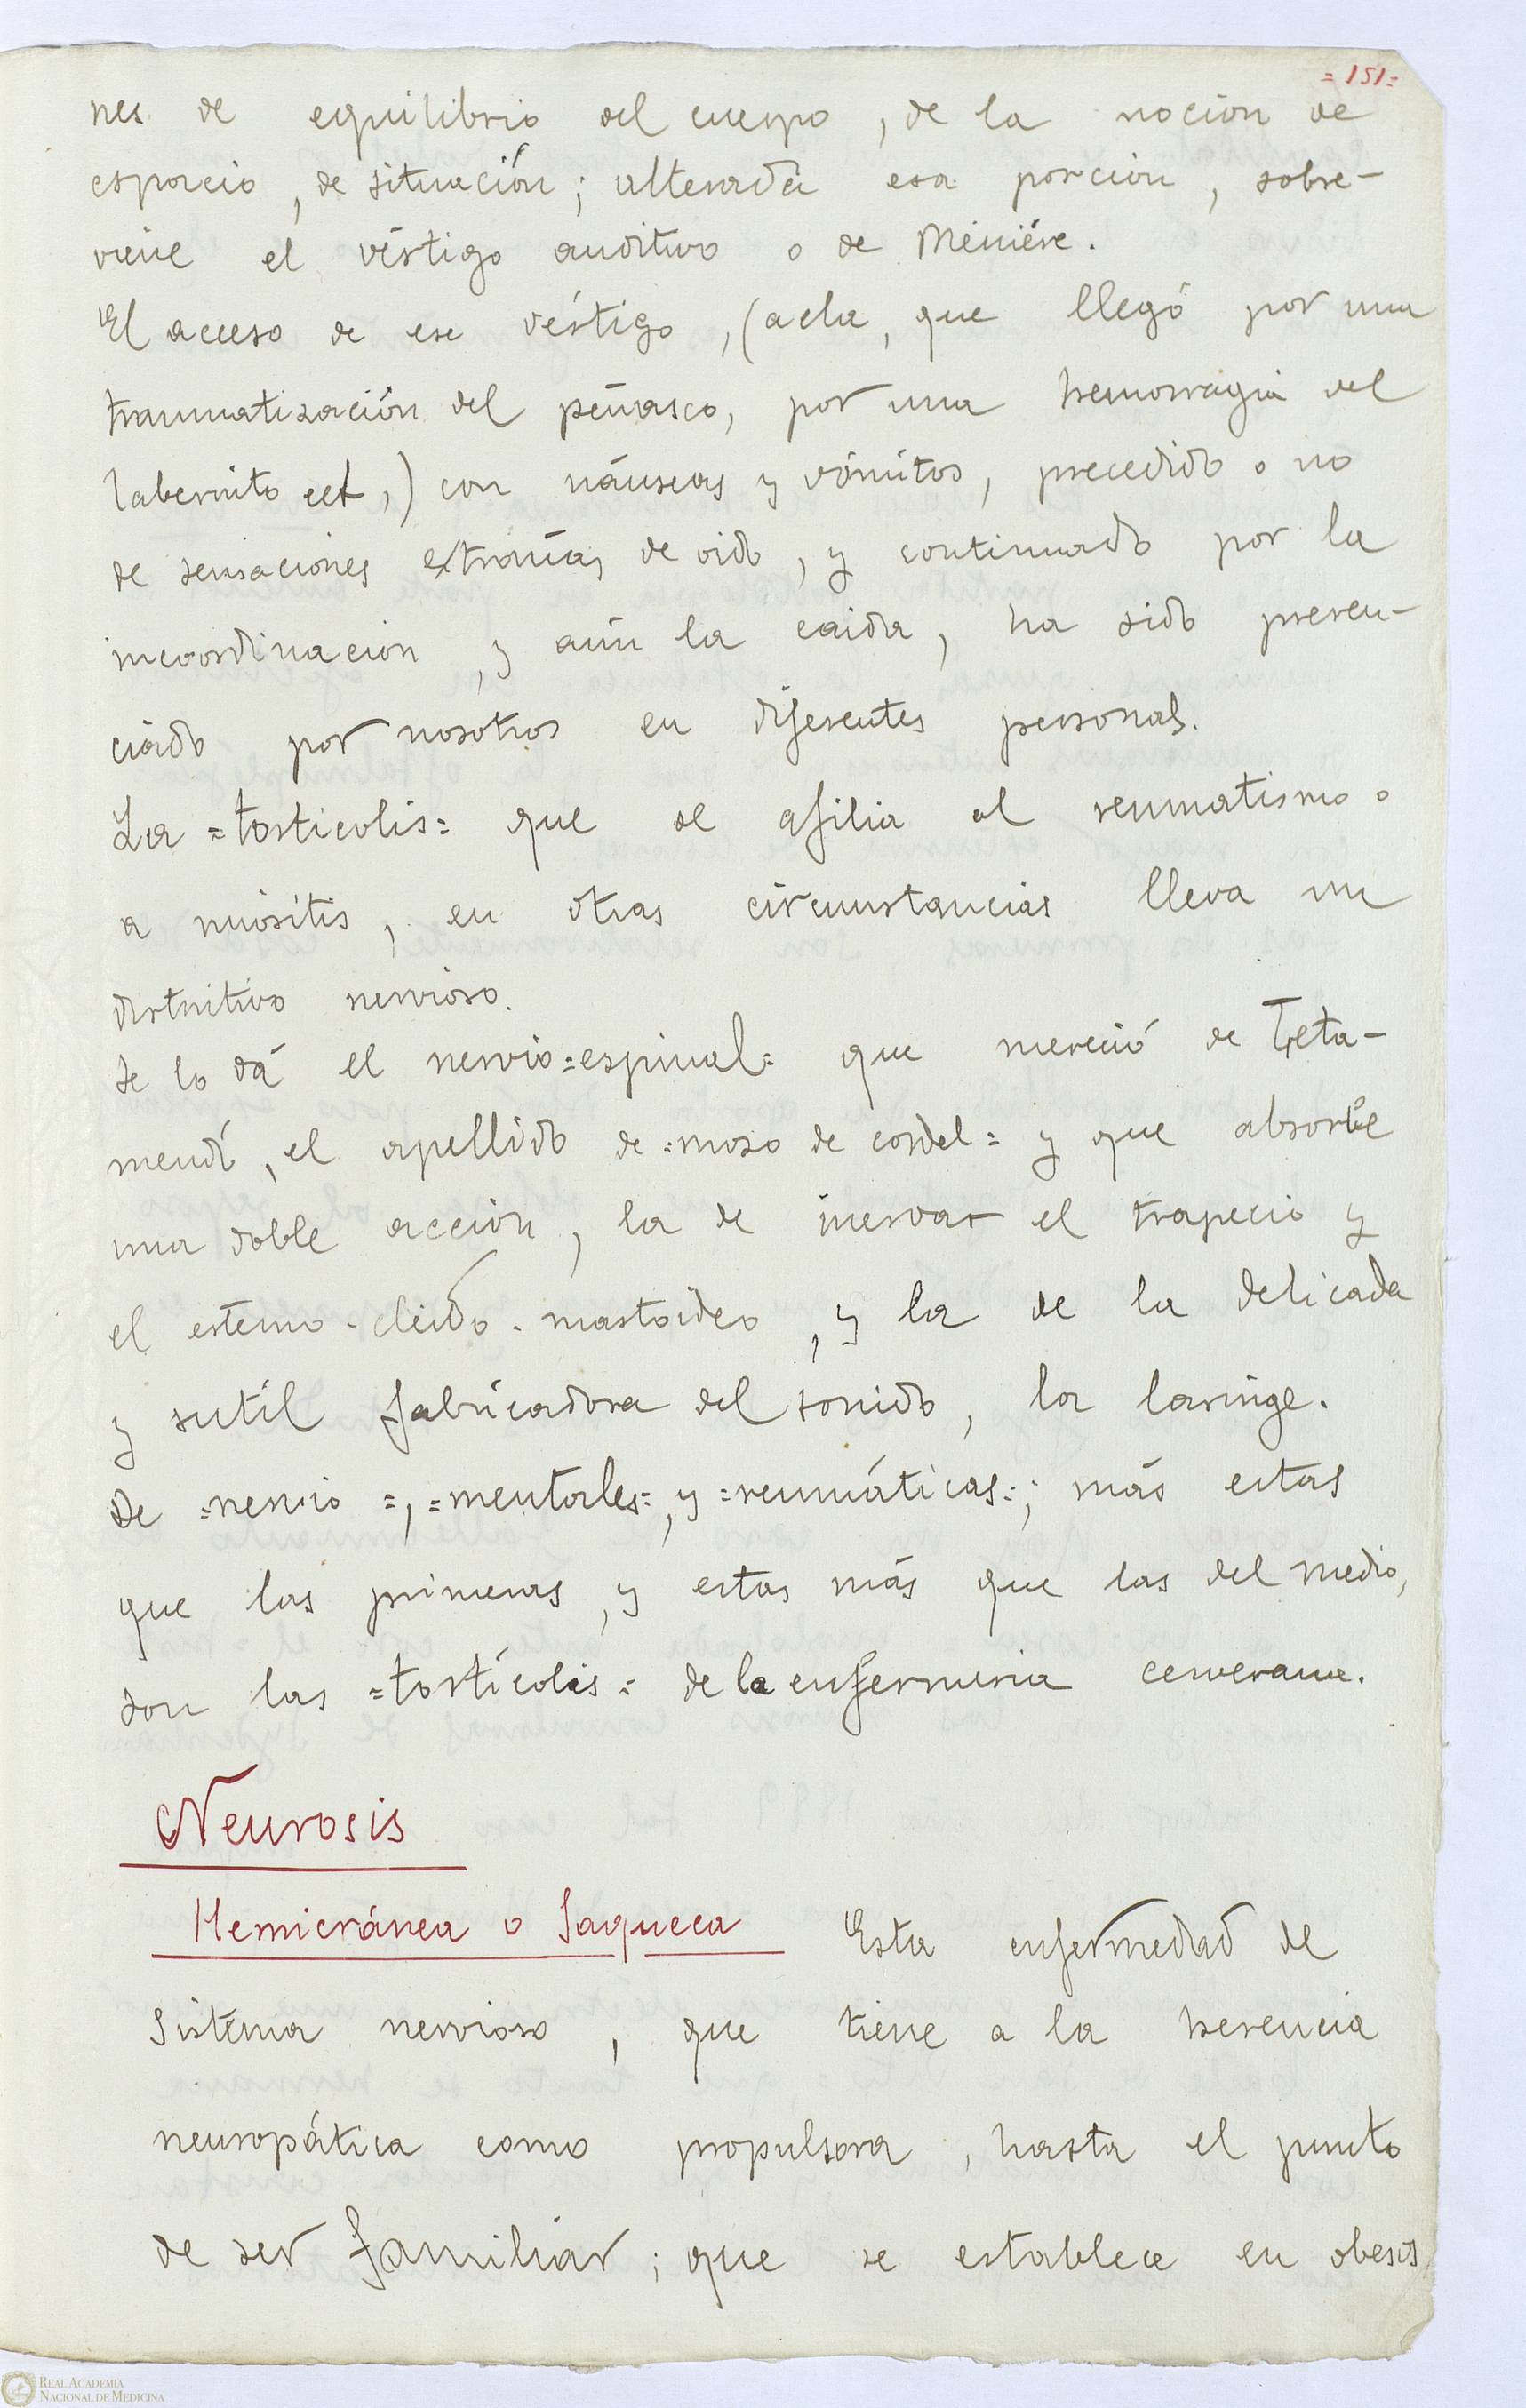 =151=
nes de equilibrio del cuerpo, de la noción de
espacio, de situación; alterada esa porción, sobre-
viene el vértigo auditivo o de Méniére.
El acceso de ese vértigo, (acla, que llegó por una
traumatización del peñasco, por una hemorragia del
laberinto ect,) con náuseas y vómitos, precedido o no
de sensaciones extrañas de oido, y continuado por la
incoordinación, y aún la caida, ha sido presen-
ciado por nosotros en diferentes personas.
La =tortícolis= que se afilia al reumatismo o
a miósitis, en otras circunstancias lleva un
distintivo nervioso.
Se lo dá el nervio=espinal= que mereció de Leta-
mendi, el apellido de =mozo de cordel= y que absorbe
una doble acción, la de inervar el trapecio y
el esterno-cleido-mastoideo, y la de la delicada
y sutíl fabricadora del sonido, la laringe.
De =nervio=, =mentales=, y =reumáticas=; más estas
que las primeras, y estas más que las del medio,
son las =tortícolis= de la enfermeria cerverana.
Neurosis
Hemicránea o Jaqueca Esta enfermedad del
sistema nervioso, que tiene a la herencia
neuropática como propulsora, hasta el punto
de ser familiar; que se establece en obesos
REAL ACADEMIA
NACIONAL DE MEDICINA